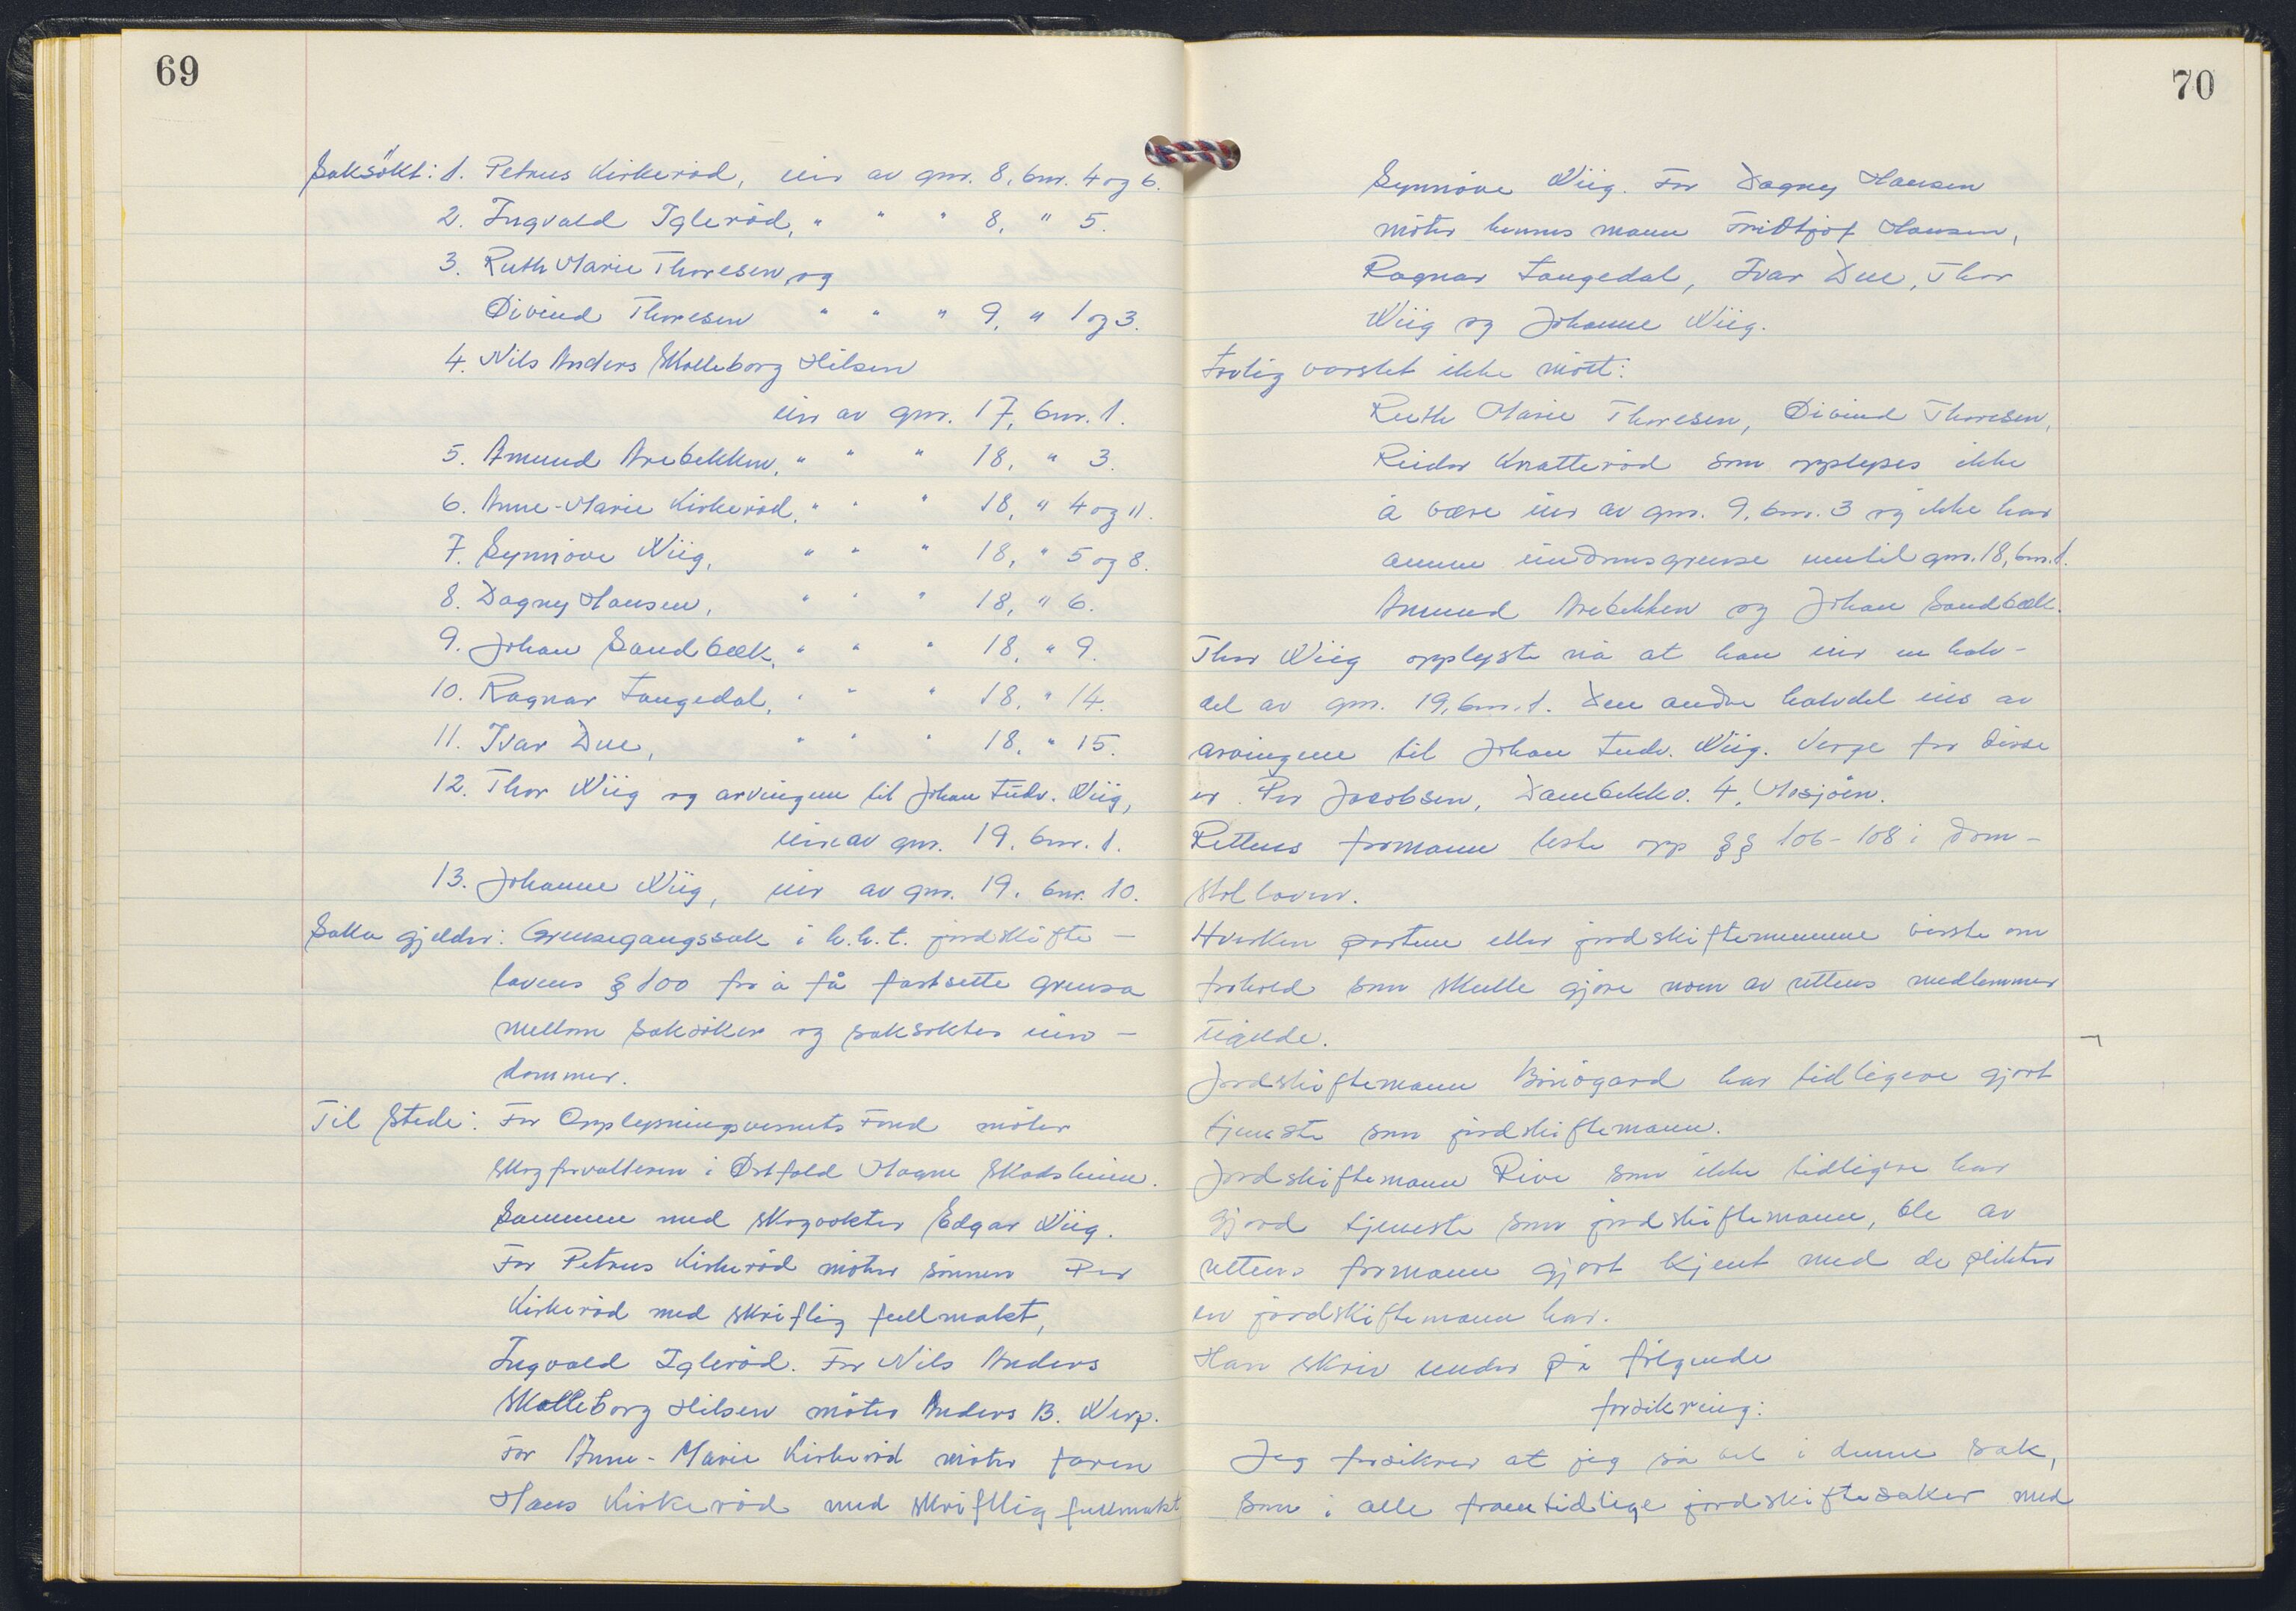 69
Saksökt: 1. Petrus Kirkeröd, eier av gnr. 8, bnr. 4 og 6.
2. Ingvald Igleröd, " " " 8, " 5.
3. Ruth Marie Thoresen, og
Öivind Thoresen " " " 9, " 1 og 3.
4. Nils Anders Skolleborg Hilsen
eier av gnr. 17, bnr. 1.
5. Amund Arebekken, " " " 18, " 3.
6. Anne-Marie Kirkeröd, " " " 18, " 4 og 11.
7. Synnöve Wiig, " " " 18, " 5 og 8.
8. Dagny Hansen, " " " 18, " 6.
9. Johan Sandbæk, " " " 18, " 9.
10. Ragnar Langedal, " " " 18, " 14.
11. Ivar Due, " " " 18, " 15.
12. Thor Wiig og arvingene til Johan Ludv. Wiig,
eier av gnr. 19, bnr. 1.
13. Johanne Wiig, eier av gnr. 19, bnr. 10.
Saka gjelder: Grensegangssak i h.h.t. jordskifte-
lovens § 100 for å få fastsette grensa
mellom saksöker og saksöktes eien-
dommer.
Til stede: For Opplysningsvesnets Fond möter
skogforvalteren i Östfold Magne Skadsheim.
Sammen med skogvokter Edgar Wiig.
For Petrus Kirkeröd möter sönnen Per
Kirkeröd med skriftlig fullmakt,
Ingvald Igleröd. For Nils Anders
Skolleborg Hilsen möter Anders B. Werp.
For Anne-Marie Kirkeröd möter faren
Hans Kirkeröd med skriftlig fullmakt,
70
Synnöve Wiig. For Dagny Hansen
möter hennes mann Fridtjof Hansen,
Ragnar Langedal, Ivar Due, Thor
Wiig og Johanne Wiig.
Lovlig varslet ikke mött:
Ruth Marie Thoresen, Öivind Thoresen,
Reidar Knatteröd som opplyses ikke
å være eier av gnr. 9, bnr. 3 og ikke har
annen eiendomsgrense inntil gnr. 18, bnr. 1.
Amund Arebekken og Johan Sandbæk.
Thor Wiig opplyste nå at han eier en halv-
del av gnr. 19, bnr. 1. Den andre halvdel eies av
arvingene til Johan Ludv. Wiig. Verge for disse
er Per Jacobsen, Dambekkv. 4, Mosjöen.
Rettens formann leste opp §§ 106-108 i dom-
stolloven.
Hverken partene eller jordskiftemennene visste om
forhold som skulle gjöre noen av rettens medlemmer
ugilde.
Jordskiftemann Brisögård har tidligere gjort
tjeneste som jordskiftemann.
Jordskiftemann Rive som ikke tidligere har
gjord tjeneste som jordskiftemann, ble av
rettens formann gjort kjent med de plikter
en jordskiftemann har.
Han skriv under på fölgende
forsikring:
Jeg forsikrer at jeg så vel i denne sak,
som i alle framtidlige jordskiftesaker med